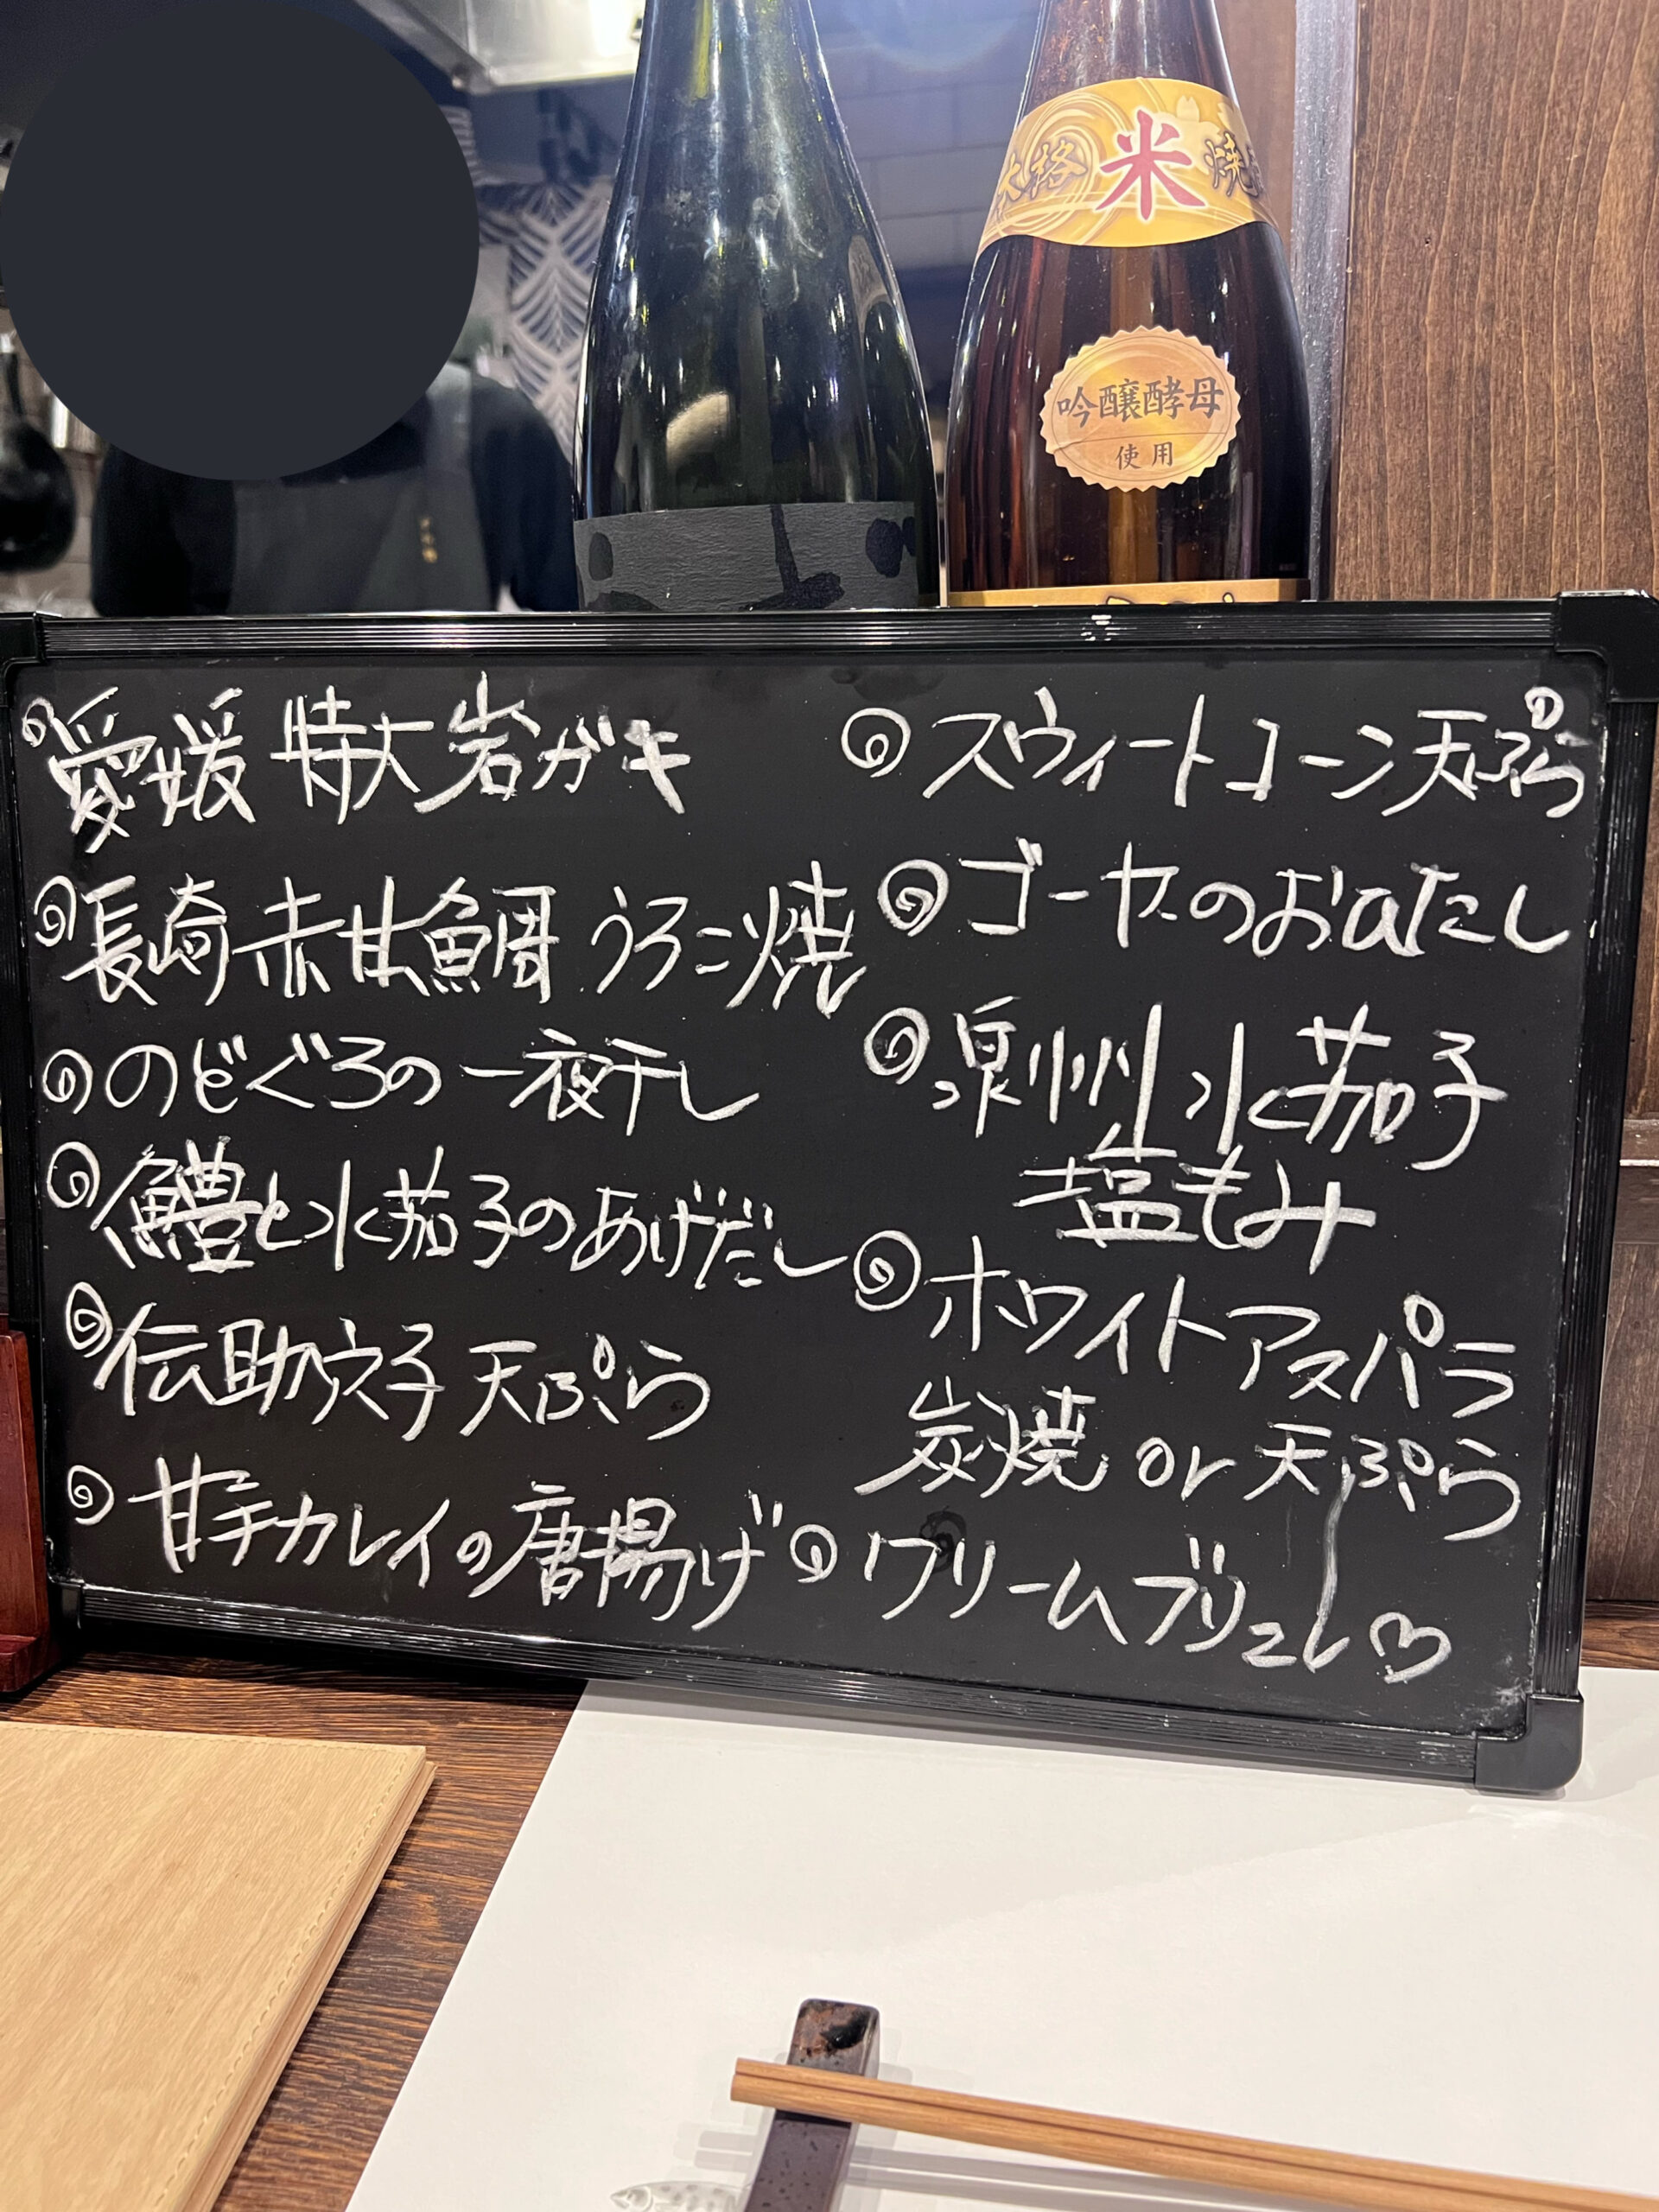 本格 米 焼
吟醸酵母
使用
愛媛 特大岩ガキ
長崎 赤甘鯛 うろこ焼
のどぐろの一夜干し
鱧と水茄子のあげだし
伝助穴子 天ぷら
甘手カレイの唐揚げ
スウィートコーン天ぷら
ゴーヤのおひたし
泉州水茄子
塩もみ
ホワイトアスパラ
炭焼 or 天ぷら
クリームブリュレ♡